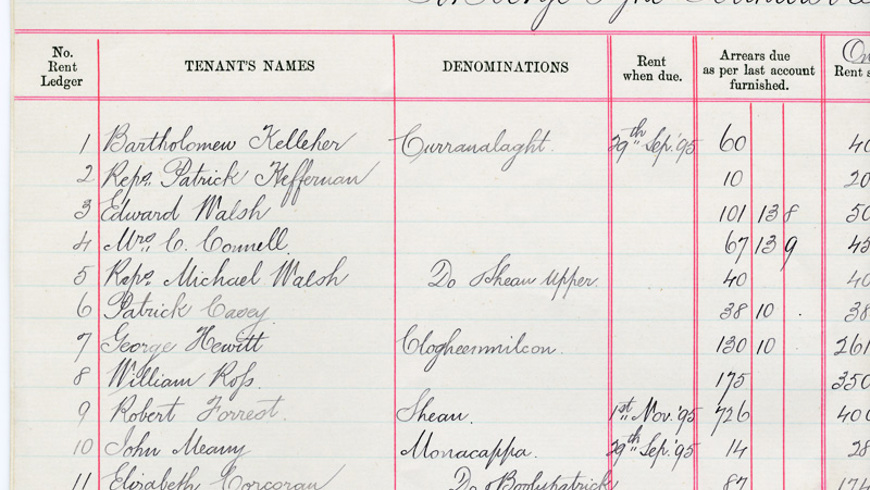 No. Rent Ledger TENANT'S NAMES DENOMINATIONS Rent when due. Arrears due as per last account furnished. Rent
1 Bartholomew Kelleher Curranalaght. 29th Sep. '95 60 40
2 Reps. Patrick Heffernan 10 20
3 Edward Walsh 101 13 8 50
4 Mrs. C. Connell 67 13 9 45
5 Reps. Michael Walsh Do Shean Upper. 40 40
6 Patrick Casey 38 10 . 38
7 George Hewitt Clogheenmilcon. 130 10 261
8 William Ross. 175 350
9 Robert Forrest. Shean. 1st Nov. '95 726 400
10 John Meany Monacappa. 29th Sep. '95 14 28
11 Elizabeth Corcoran Do Boolypatrick 87 174